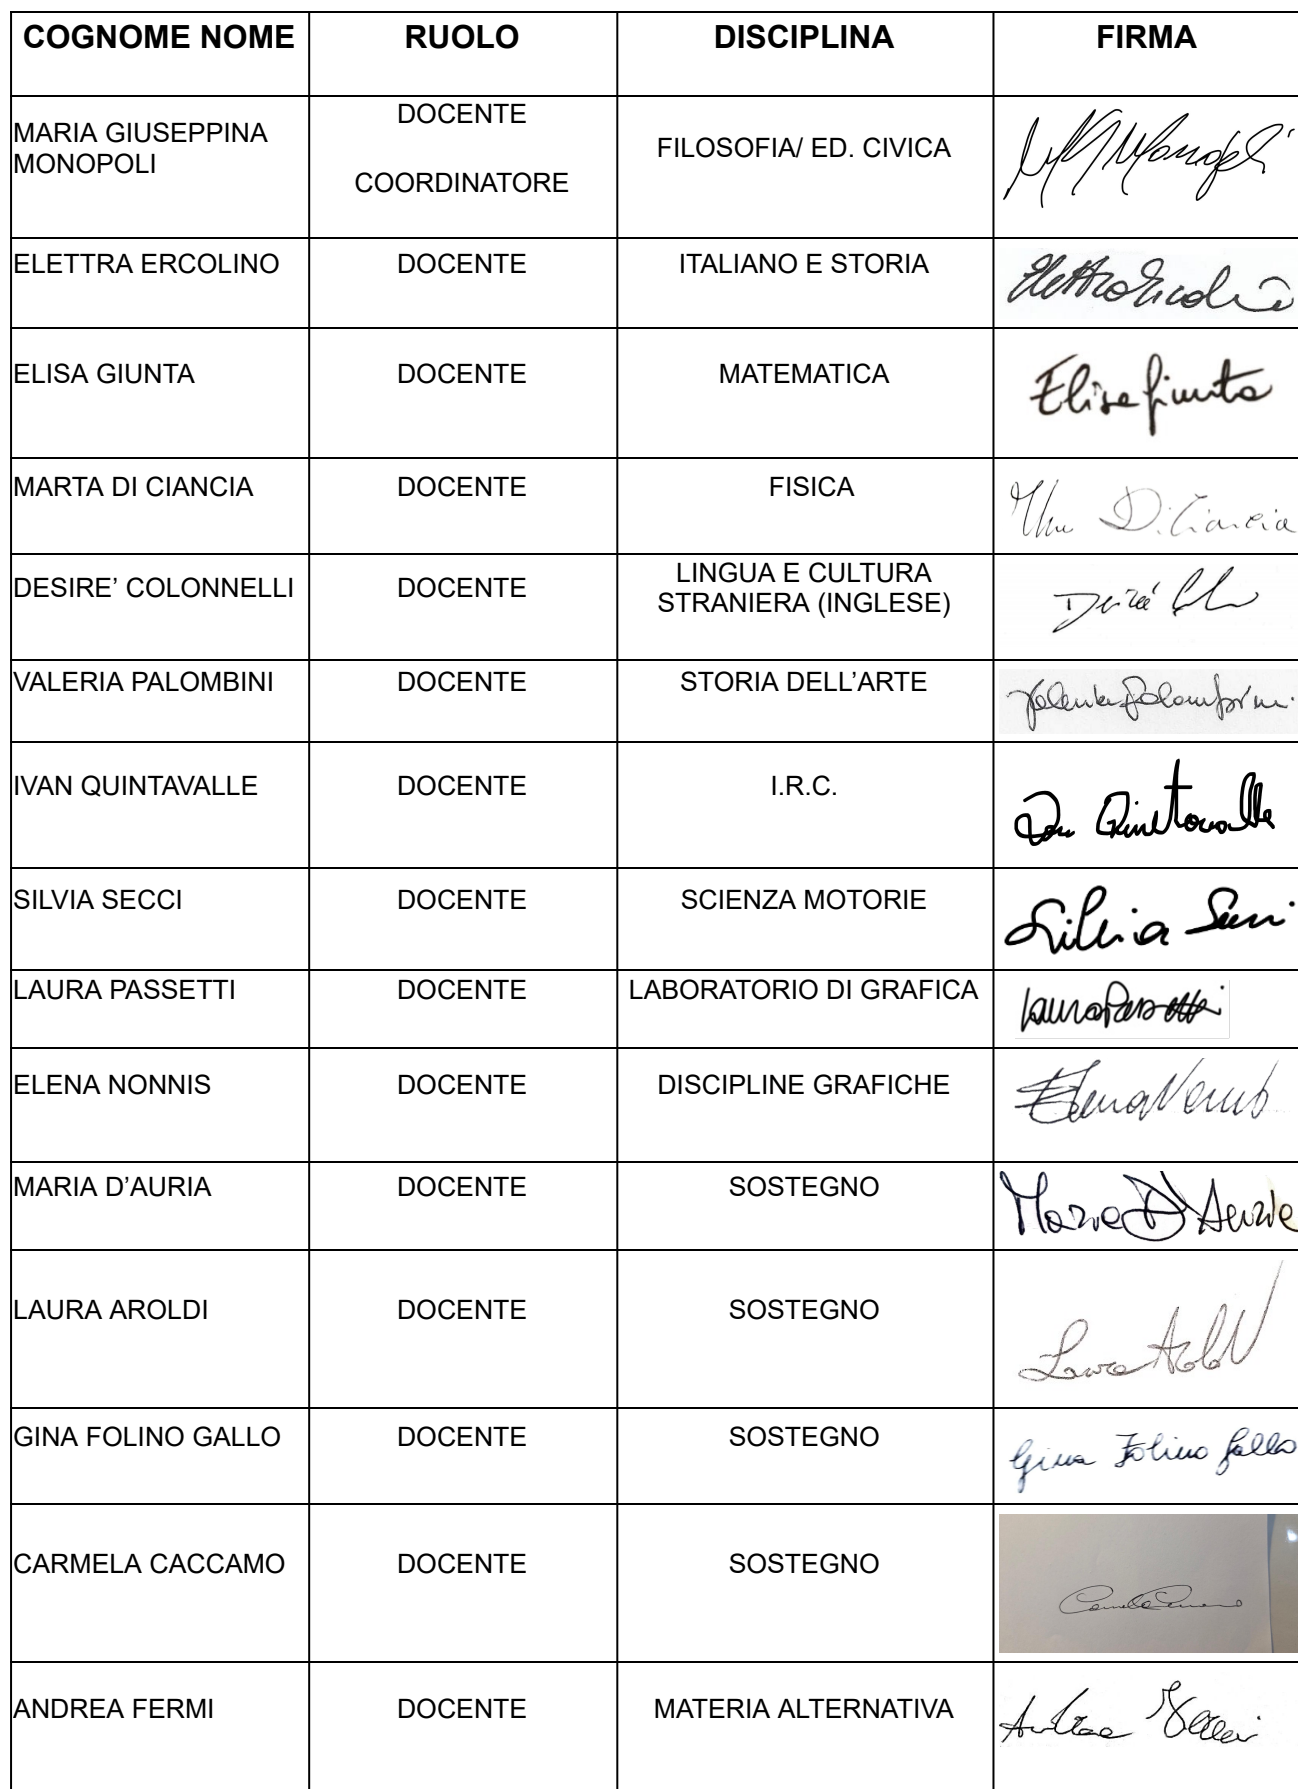 COGNOME NOME RUOLO DISCIPLINA FIRMA
MARIA GIUSEPPINA
MONOPOLI
DOCENTE
COORDINATORE
FILOSOFIA/ ED. CIVICA
ELETTRA ERCOLINO DOCENTE ITALIANO E STORIA
ELISA GIUNTA DOCENTE MATEMATICA Elisa Giunta
MARTA DI CIANCIA DOCENTE FISICA Di Ciancia
DESIRE’ COLONNELLI DOCENTE
LINGUA E CULTURA
STRANIERA (INGLESE)
VALERIA PALOMBINI DOCENTE STORIA DELL’ARTE Valeria Palombini
IVAN QUINTAVALLE DOCENTE I.R.C. Quintavalle
SILVIA SECCI DOCENTE SCIENZA MOTORIE Silvia Secci
LAURA PASSETTI DOCENTE LABORATORIO DI GRAFICA Laura Passetti
ELENA NONNIS DOCENTE DISCIPLINE GRAFICHE Elena Nonnis
MARIA D’AURIA DOCENTE SOSTEGNO Maria D'Auria
LAURA AROLDI DOCENTE SOSTEGNO Laura Aroldi
GINA FOLINO GALLO DOCENTE SOSTEGNO Gina Folino Gallo
CARMELA CACCAMO DOCENTE SOSTEGNO
ANDREA FERMI DOCENTE MATERIA ALTERNATIVA Andrea Fermi